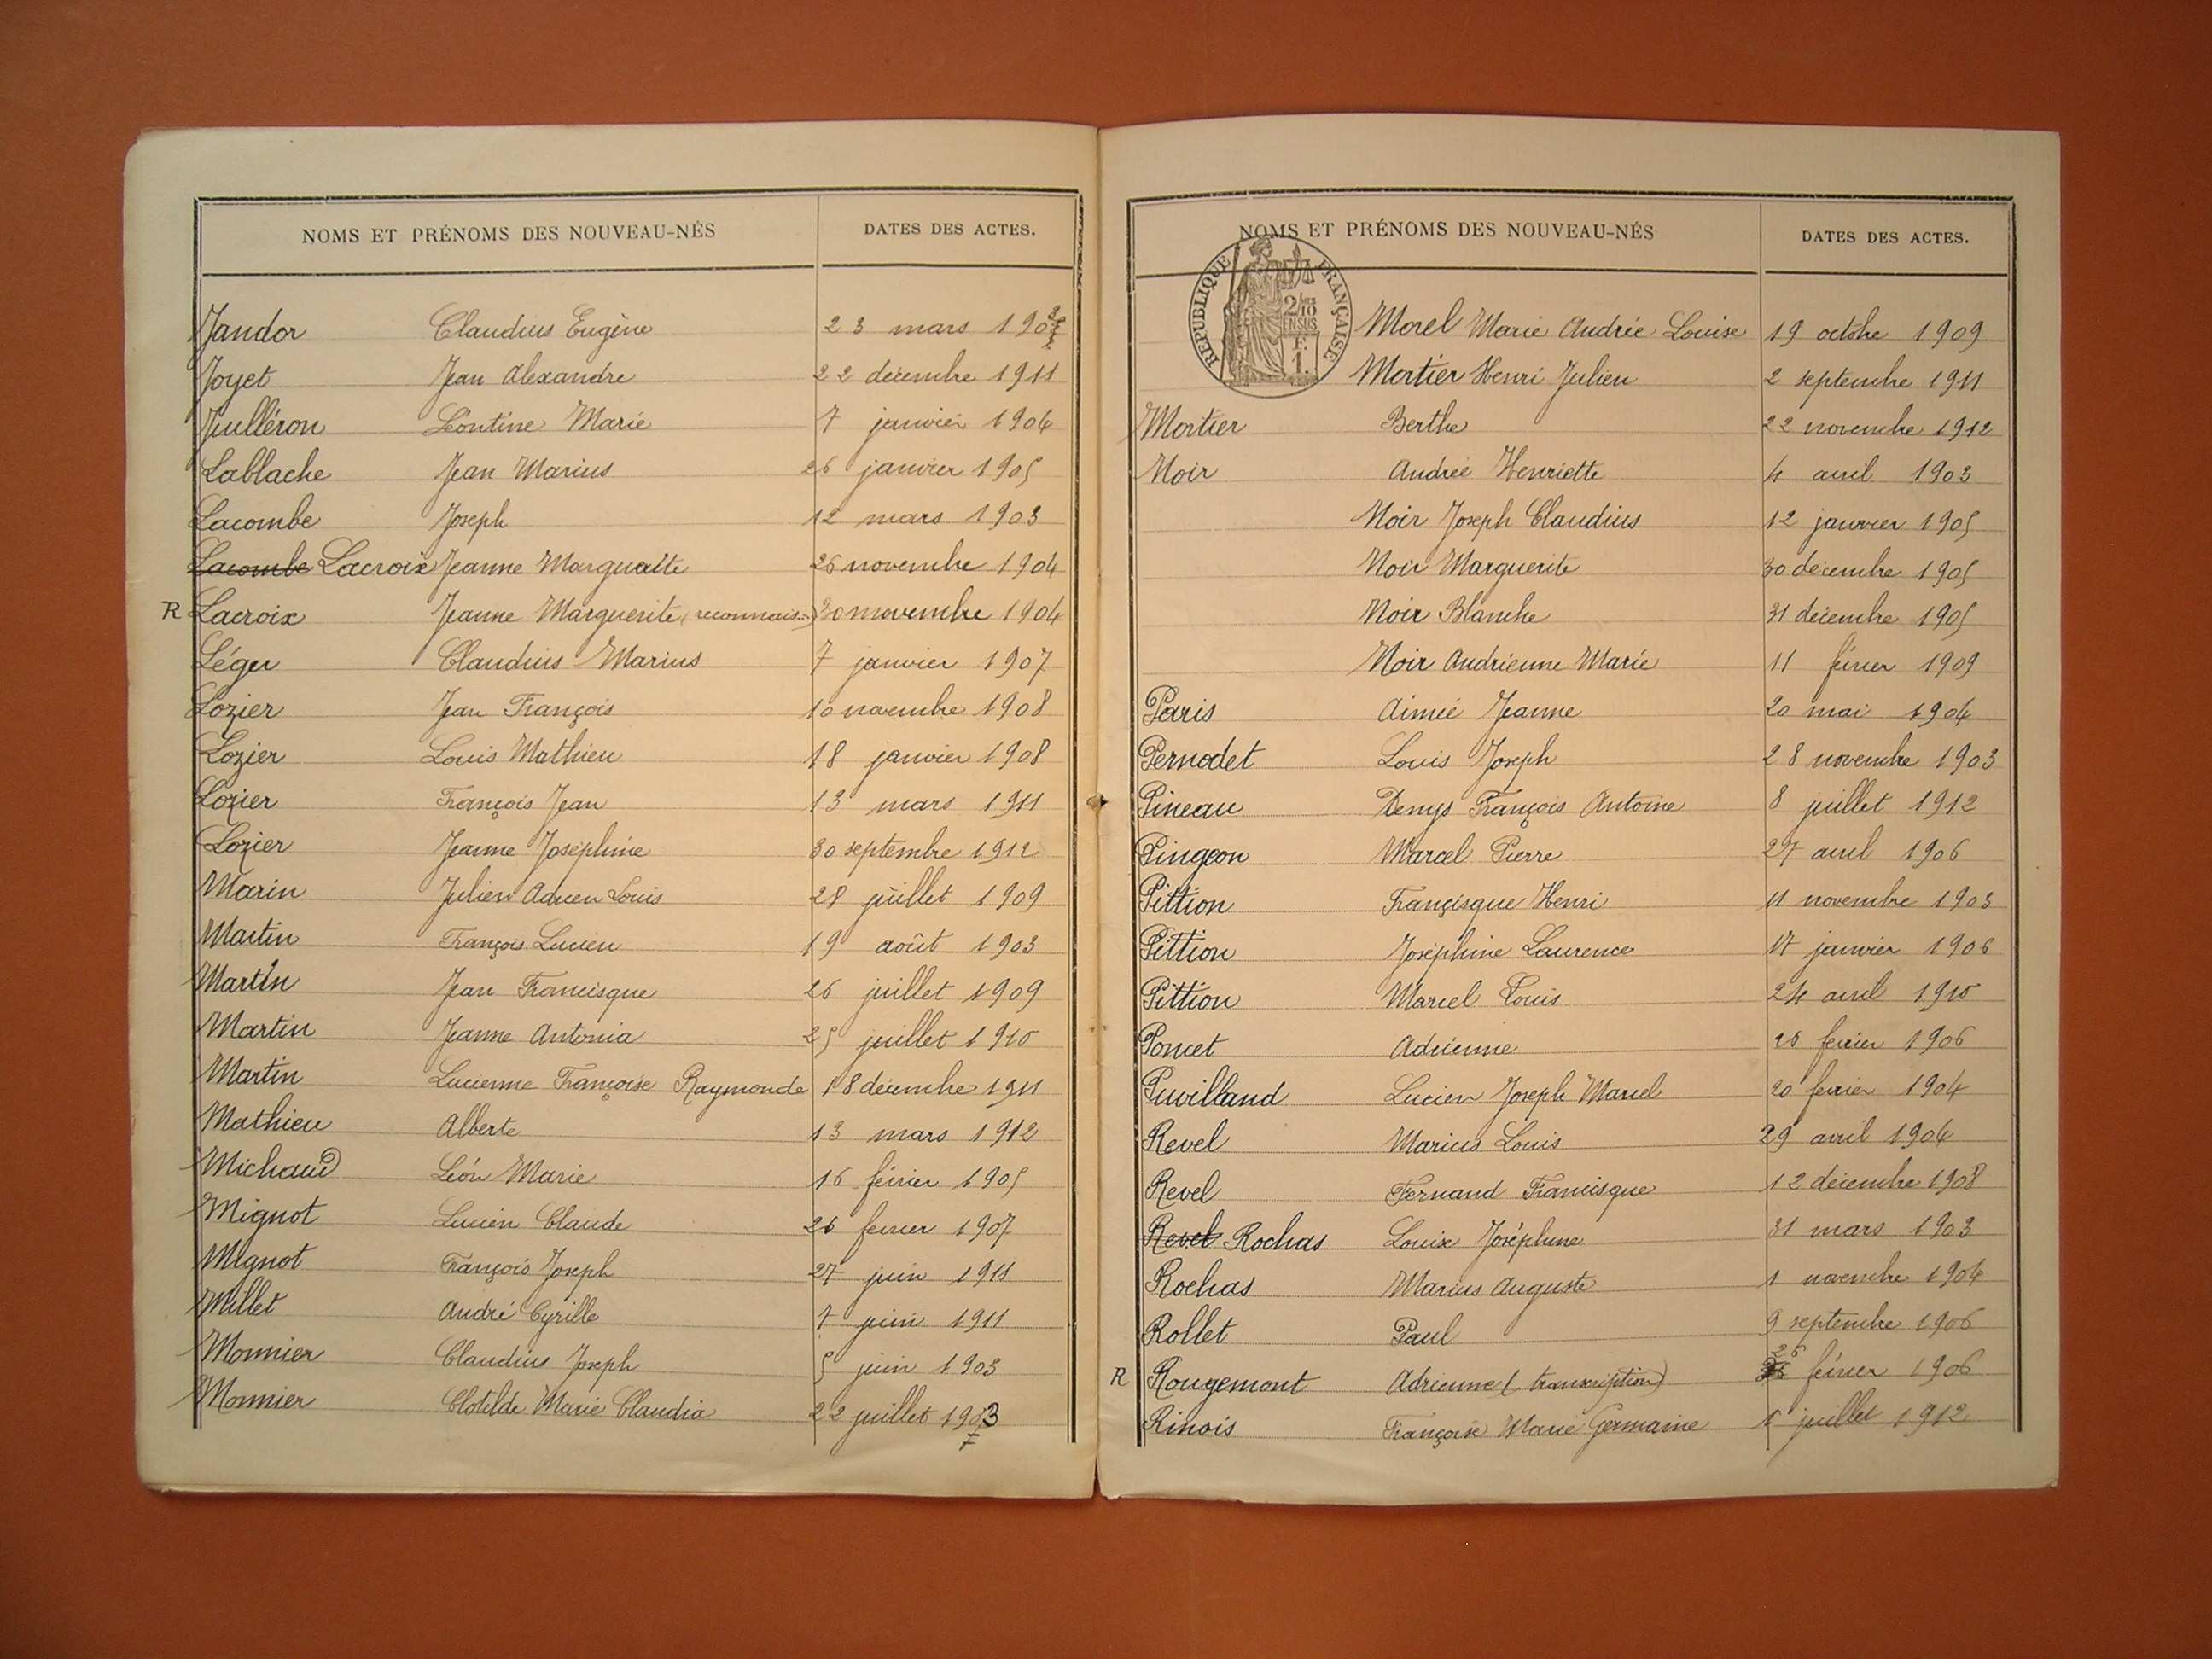 NOMS ET PRÉNOMS DES NOUVEAU-NÉS DATES DES ACTES.
Jandor Claudius Eugène 23 mars 190
Joyet Jean Alexandre 22 décembre 1911
Juilléron Léontine Marie 7 janvier 1904
Lablache Jean Marius 26 janvier 1905
Lacombe Joseph 12 mars 1903
Lacombe Lacroix Jeanne Marguerite 26 novembre 1904
R Lacroix Jeanne Marguerite (reconnais..) 30 novembre 1904
Léger Claudius Marius 7 janvier 1907
Lozier Jean François 10 novembre 1908
Lozier Louis Mathieu 18 janvier 1908
Lozier François Jean 13 mars 1911
Lozier Jeanne Joséphine 30 septembre 1912
Marin Julien Adrien Louis 28 juillet 1909
Martin François Lucien 19 août 1903
Martin Jean Francisque 26 juillet 1909
Martin Jeanne Antonia 25 juillet 1910
Martin Lucienne Françoise Raymonde 18 décembre 1911
Mathieu Alberte 13 mars 1912
Michaud Léon Marie 16 février 1905
Mignot Lucien Claude 26 février 1907
Mignot François Joseph 27 juin 1911
Millet André Cyrille 7 juin 1911
Monnier Claudius Joseph 5 juin 1903
Monnier Clotilde Marie Claudia 22 juillet 1903
NOMS ET PRÉNOMS DES NOUVEAU-NÉS DATES DES ACTES.
RÉPUBLIQUE FRANÇAISE
2/10
EN SUS
F.
1.
Morel Marie Andrée Louise 19 octobre 1909
Mortier Henri Julien 2 septembre 1911
Mortier Berthe 22 novembre 1912
Noir Andrée Henriette 4 avril 1903
Noir Joseph Claudius 12 janvier 1905
Noir Marguerite 30 décembre 1905
Noir Blanche 31 décembre 1905
Noir Andrienne Marie 11 février 1909
Paris Aimée Jeanne 20 mai 1904
Pernodet Louis Joseph 28 novembre 1903
Pineau Denys François Antoine 8 juillet 1912
Pingeon Marcel Pierre 27 avril 1906
Pittion Françisque Henri 11 novembre 1903
Pittion Joséphine Laurence 17 janvier 1906
Pittion Marcel Louis 24 avril 1910
Poncet Adrienne 26 février 1906
Puvilland Lucien Joseph Marcel 20 février 1904
Revel Marius Louis 29 avril 1904
Revel Fernand Francisque 12 décembre 1908
Revel Rochas Louise Joséphine 31 mars 1903
Rochas Marius Auguste 1 novembre 1904
Rollet Paul 9 septembre 1906
R Rougemont Adrienne (transcription) 26 février 1906
Rinois Françoise Marie Germaine 1 juillet 1912